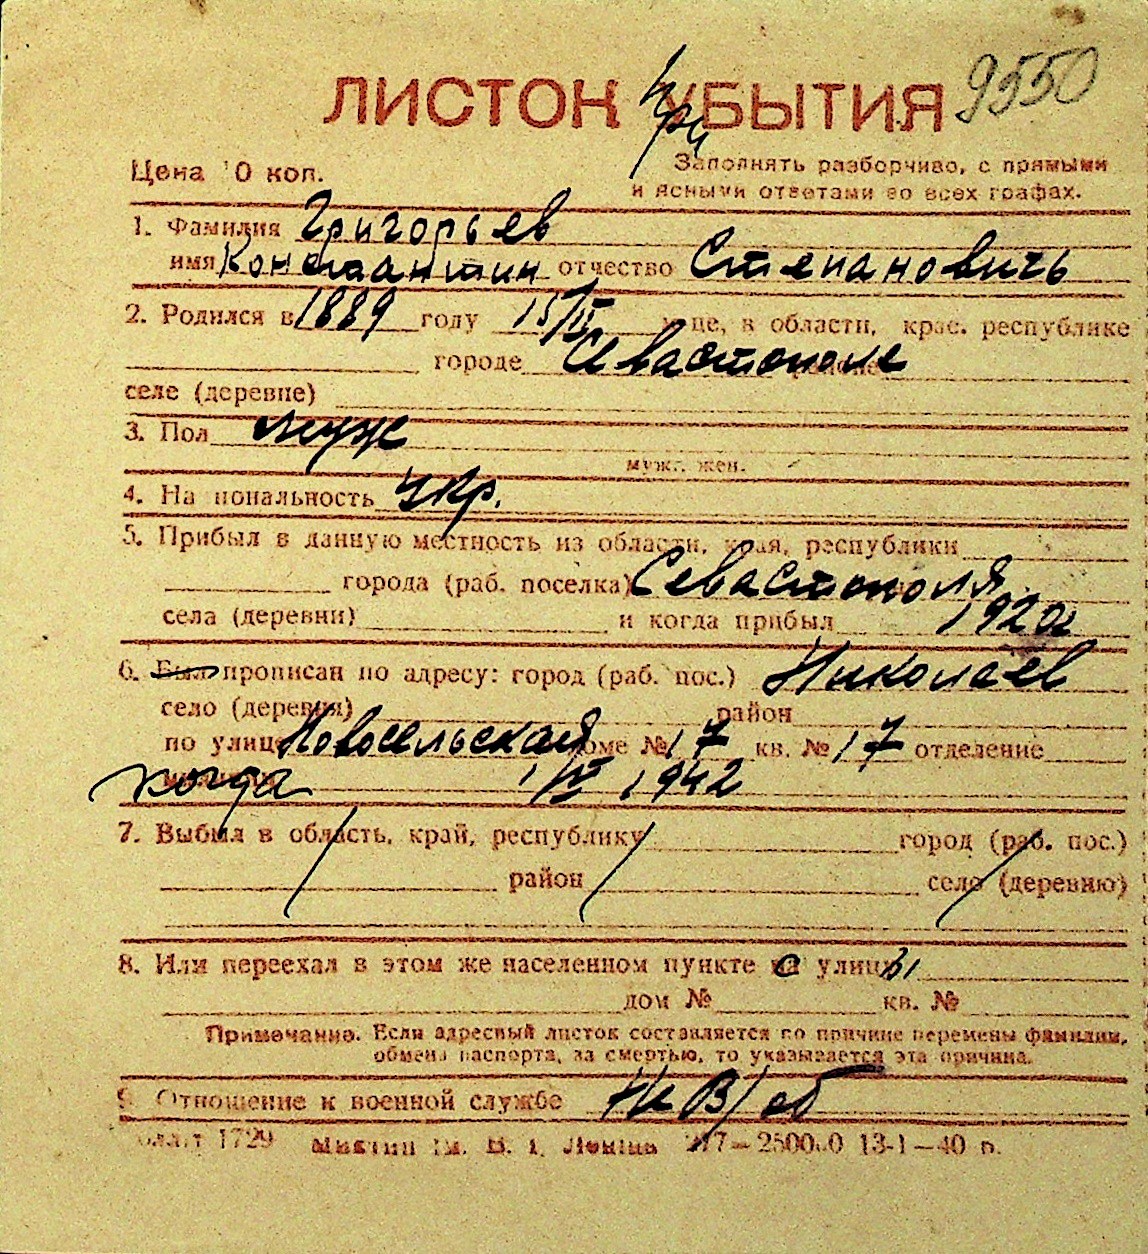 9550
ЛИСТОК При УБЫТИЯ
Цена 10 коп.
Заполнять разборчиво, с прямыми
и ясными ответами во всех графах.
1. Фамилия Григорьев
имя Константин отчество Степанович
2. Родился в 1889 году 15/II м-це, в области, крае, республике
городе Севастополе
селе (деревне)
3. Пол муж
мужс. жен.
4. Национальность Укр.
5. Прибыл в данную местность из области, края, республики
города (раб. поселка) Севастополя
села (деревни) и когда прибыл 1920г
6. Был прописан по адресу: город (раб. пос.) Николаев
село (деревня) район
по улице Новосельская доме № 17 кв. № 17 отделение
когда 1/IV 1942
7. Выбыл в область, край, республику город (раб. пос.)
район село (деревню)
8. Или переехал в этом же населенном пункте с улицы
дом № кв. №
Примечание. Если адресный листок составляется по причине перемены фамилии,
обмена паспорта, за смертью, то указывается эта причина.
9. Отношение к военной службе Не В/об
1729 им. В. І. Леніна 217—250000 13-1—40 р.